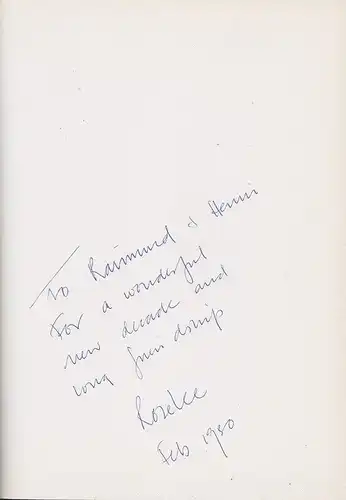 To Raimund & Henni
For a wonderful
new decade and
long friendship
Feb 1980